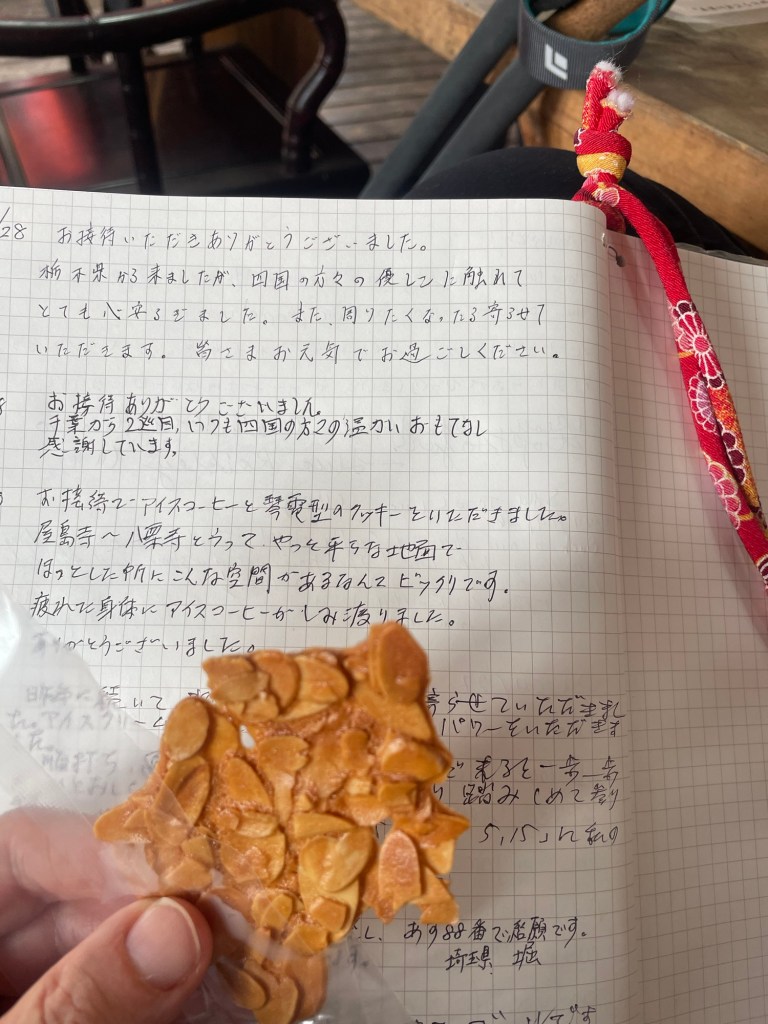 /28 お接待いただきありがとうございました。
栃木県から来ましたが、四国の方々の優しさに触れて
とても心安らぎました。また、周りたくなったら寄らせて
いただきます。皆さまお元気でお過ごしください。
お接待ありがとうございました。
千葉から2巡目、いつも四国の方々の温かいおもてなし
感謝しています。
お接待でアイスコーヒーと琴電型のクッキーをいただきました。
屋島寺〜八栗寺とうって やっと平らな地面で
ほっとした所にこんな空間があるなんてビックリです。
疲れた身体にアイスコーヒーがしみ渡りました。
ありがとうございました。
昨年に続いて 寄らせていただきまし
た。アイスクリーム パワーをいただきま
した。
で来ると一歩一歩
踏みしめて登り
5,15」に私の
し、あす88番で結願です。
埼玉県 堀